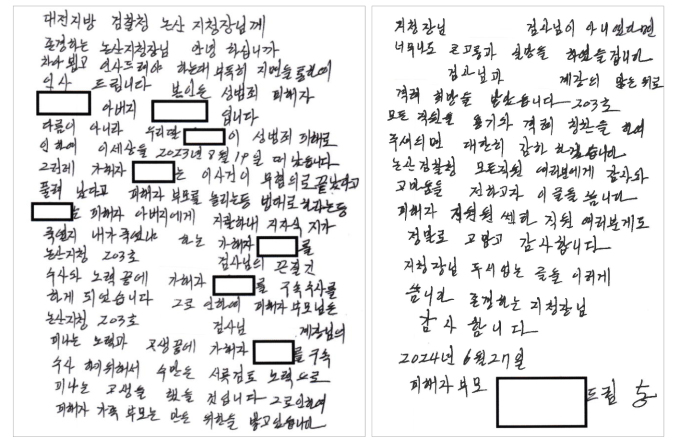 대전지방 검찰청 논산 지청장님께
존경하는 논산지청장님 안녕 하십니까
찾아뵙고 인사드려야 하는데 부득히 지면을 통하여
인사 드립니다 본인은 성범죄 피해자
아버지 입니다
다름이 아니라 우리딸 이 성범죄 피해로
인하여 이세상을 2023년 8월 19일 떠났습니다
그런데 가해자 는 이사건이 무혐의로 끝났다고
풀려 났다고 피해자 부모를 놀리는등 법대로 하라는등
는 피해자 아버지에게 지랄하네 지자식 지가
죽였지 내가 죽였냐 하는 가해자 를
논산지청 203호 검사님의 끈질긴
수사와 노력 끝에 가해자 를 구속수사를
하게 되었습니다 그로 인하여 피해자 부모님은
논산지청 203호 검사님 계장님의
피나는 노력과 고생끝에 가해자 를 구속
수사 하기위해서 수많은 서류검토 노력으로
피나는 고생을 했을 것입니다 그로인하여
피해자 가족 부모는 많은 위안을 받고있습니다
지청장님 검사님이 아니였다면
너무나도 큰고통과 실망을 하였을겁니다
검사님과 계장의 많은 위로
격려 희망을 받았습니다 203호
모든 직원을 용기와 격려 칭찬을 하여
주셨으면 대단히 감사 하겠습니다
논산검찰청 모든직원 여러분에게 감사와
고마움을 전하고자 이글을 씁니다
피해자 지원 센타 직원 여러분게도
정말로 고맙고 감사합니다
지청장님 두서없는 글을 이렇게
씁니다 존경하는 지청장님
감사합니다
2024년 6월 27일
피해자 부모 드림